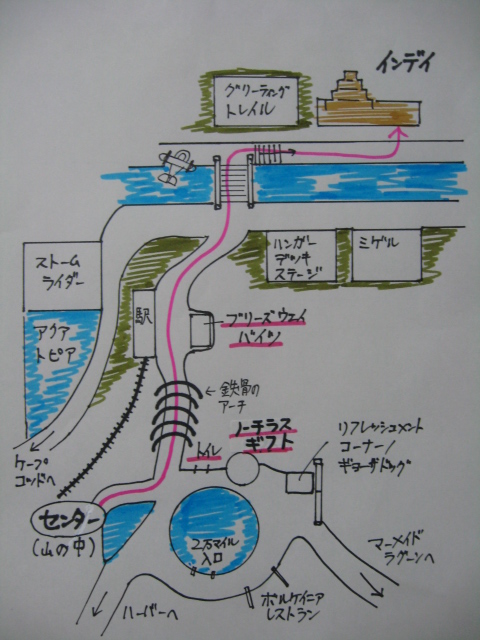 インディ
グリーティング
トレイル
ストーム
ライダー
ハンガー
デッキ
ステージ
ミゲル
アクア
トピア
駅
ブリーズウェイ
バイツ
←鉄骨の
アーチ
ノーチラス
ギフト
トイレ
リフレッシュメント
コーナー/
ギョーザドッグ
ケープ
コッドへ
センター
(山の中)
2万マイル
入口
マーメイド
ラグーンへ
ハーバーへ
ボルケイニア
レストラン